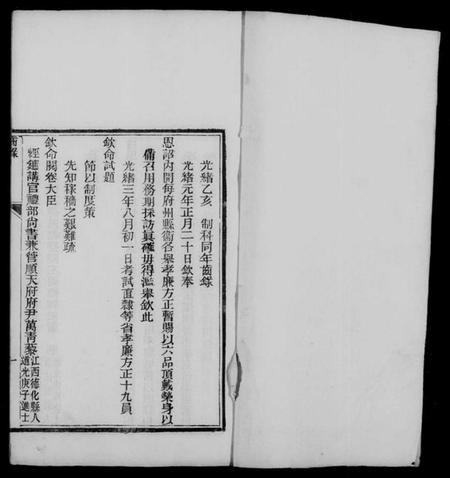 光緒乙亥　制科同年齒錄
光緒元年正月二十日欽奉
恩詔內開每府州縣衛各舉孝廉方正暫賜以六品頂戴榮身以
備召用務期採訪眞確毋得濫舉欽此
光緒三年八月初一日考試直隸等省孝廉方正十九員
欽命試題
節以制度策
先知稼穡之艱難疏
欽命閱卷大臣
經筵講官禮部尚書兼管順天府府尹萬青藜 江西德化縣人
道光庚子進士
齒錄
一